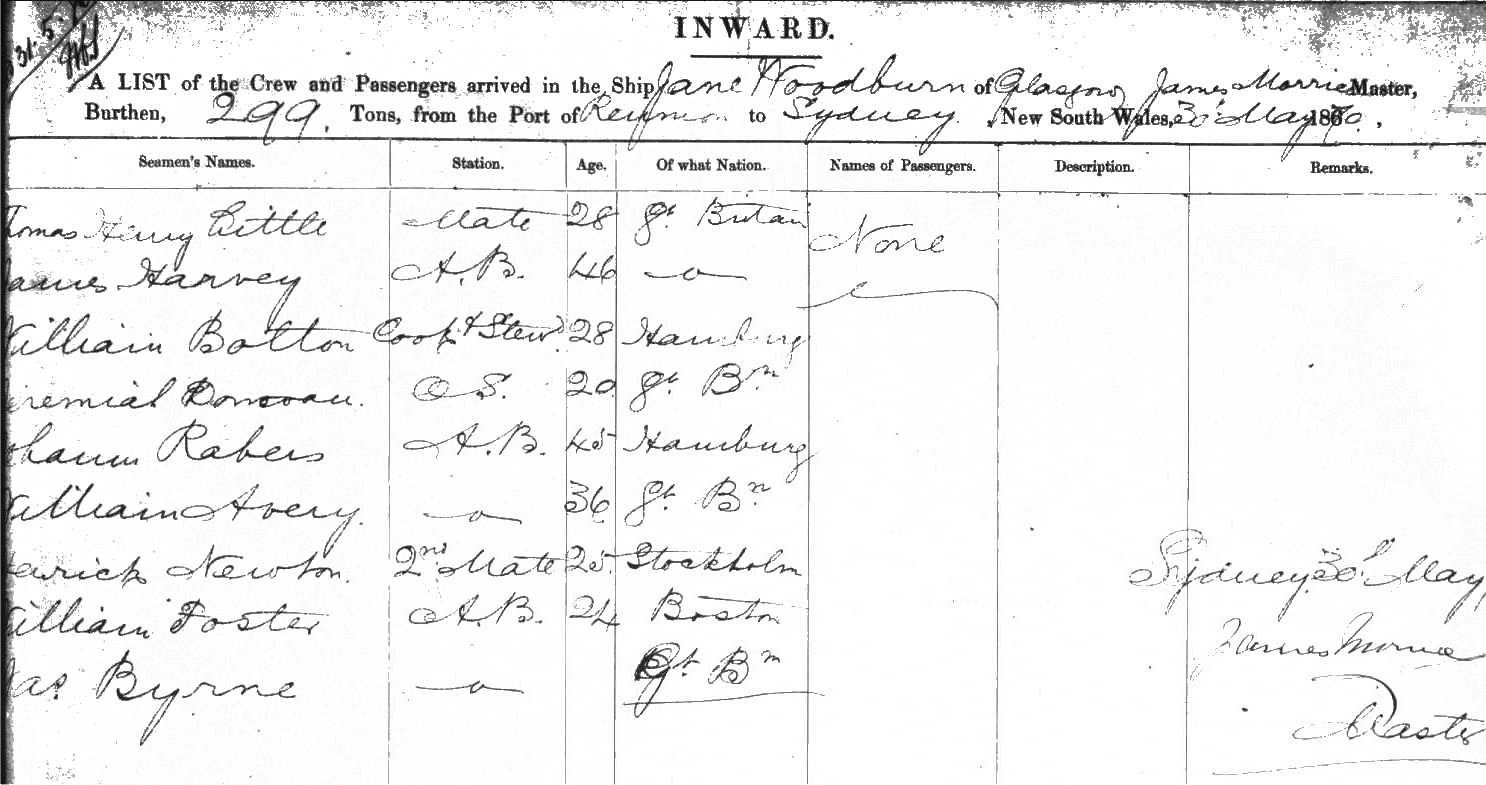 31.5.70
INWARD.
A LIST of the Crew and Passengers arrived in the Ship Jane Woodburn of Glasgow James Morrice Master,
Burthen, 299. Tons, from the Port of to Sydney. New South Wales, 30th May 1870.
Seamen's Names. Station. Age. Of what Nation. Names of Passengers. Description. Remarks.
Thomas Henry Little Mate 28 Gt Britain None
James Harvey A.B. 46 —o—
William Botton Cook & Stewd 28 Hamburg
Jeremiah Donovan. O.S. 20 Gt Bn
Johann Rabers A.B. 45 Hamburg
William Avery. —o— 36 Gt Bn
Newton. 2nd Mate 25 Stockholm
William Foster A.B. 24 Boston
Jas. Byrne —o— Gt Bn
Sydney. 30th May,
James Morrice
Master